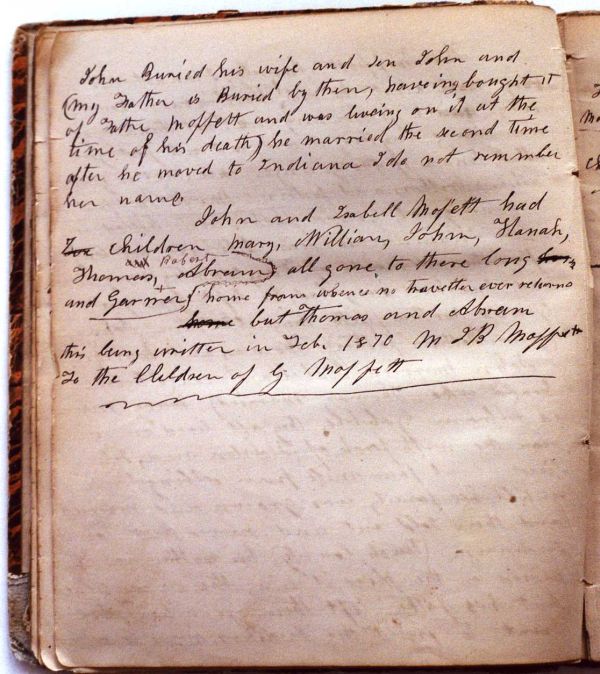 John Buried his wife and son John and
(my Father is Buried by them, haveing bought it
of Moffett and was liveing on it at the
time of his death) he married the second time
after he moved to Indiana I do not remember
her name
John and Isabell Moffett had
Children Mary, William, John, Hanah,
Robert
Thomas, Abram all gone to there long
and Garner home from whence no travetter ever returns
home but Thomas and Abram
this being written in Feb. 1870 M J B Moffett
To the Children of G Moffett